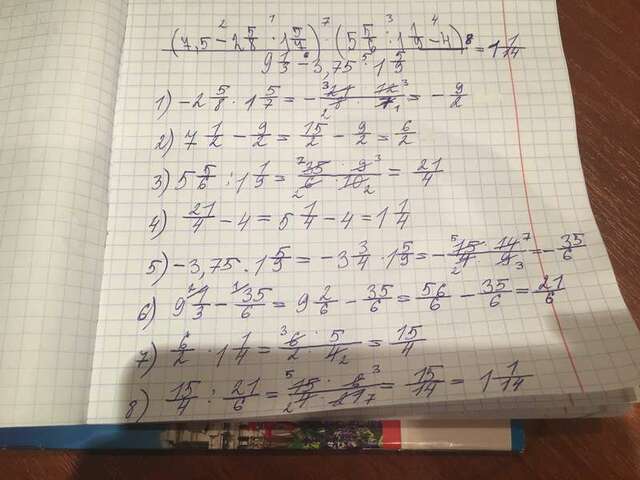 (7,5 - 2 5/8 · 1 5/7) · (5 5/6 : 1 1/9 - 4)
9 1/3 - 3,75 · 1 5/9 = 1 1/14
1) -2 5/8 · 1 5/7 = - 21/8 · 12/7 = - 9/2
2) 7 1/2 - 9/2 = 15/2 - 9/2 = 6/2
3) 5 5/6 : 1 1/9 = 35/6 · 9/10 = 21/4
4) 21/4 - 4 = 5 1/4 - 4 = 1 1/4
5) -3,75 · 1 5/9 = -3 3/4 · 1 5/9 = - 15/4 · 14/9 = - 35/6
6) 9 1/3 - 35/6 = 9 2/6 - 35/6 = 56/6 - 35/6 = 21/6
7) 6/2 · 1 1/4 = 6/2 · 5/4 = 15/4
8) 15/4 : 21/6 = 15/4 · 6/21 = 15/14 = 1 1/14